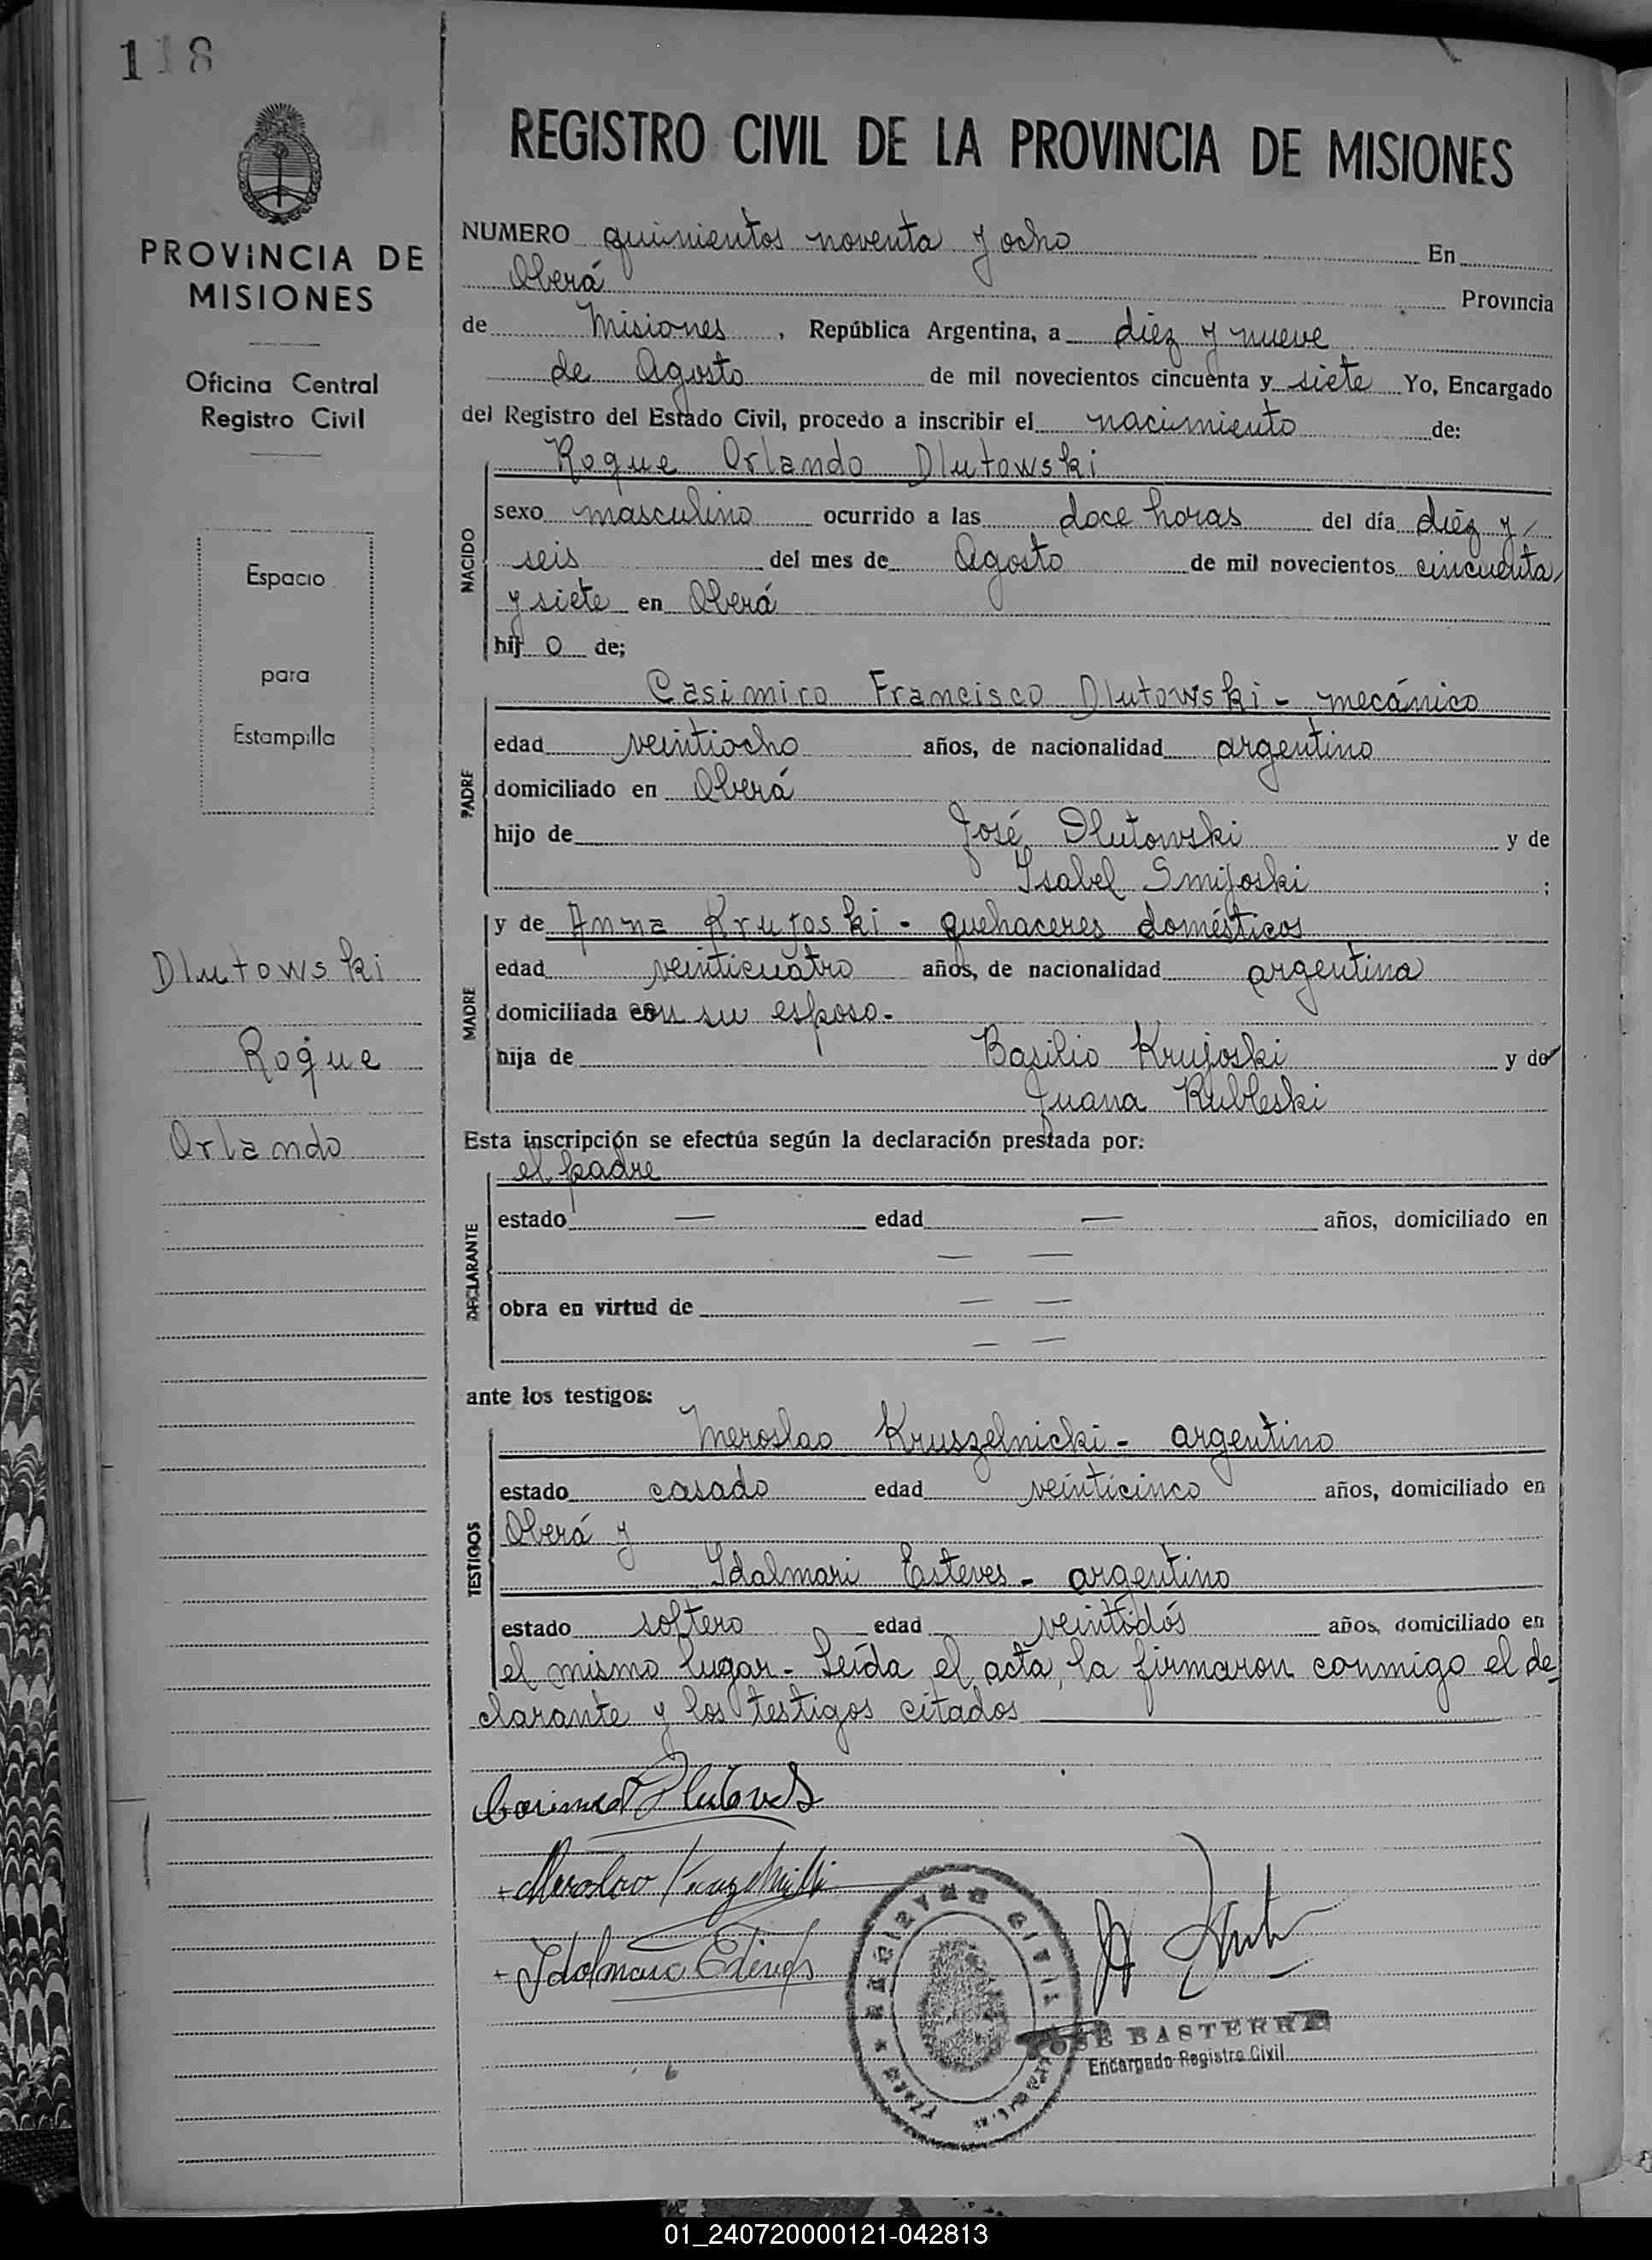 118
PROVINCIA DE
MISIONES
Oficina Central
Registro Civil
Espacio
para
Estampilla
Dlutowski
Roque
Orlando
REGISTRO CIVIL DE LA PROVINCIA DE MISIONES
NUMERO quinientos noventa y ocho En
Oberá Provincia
de Misiones, República Argentina, a diez y nueve
de Agosto de mil novecientos cincuenta y siete Yo, Encargado
del Registro del Estado Civil, procedo a inscribir el nacimiento de:
Roque Orlando Dlutowski
NACIDO
sexo masculino ocurrido a las doce horas del día diez y
seis del mes de Agosto de mil novecientos cincuenta
y siete en Oberá
hij o de;
Casimiro Francisco Dlutowski - mecánico
PADRE
edad veintiocho años, de nacionalidad argentino
domiciliado en Oberá
hijo de José Dlutowski y de
Isabel Smijoski ;
y de Anna Krujoski - quehaceres domésticos
MADRE
edad veinticuatro años, de nacionalidad argentina
domiciliada con su esposo.
hija de Basilio Krujoski y de
Juana Rubleski
Esta inscripción se efectúa según la declaración prestada por:
el padre
DECLARANTE
estado — edad — años, domiciliado en
— —
obra en virtud de — —
— —
ante los testigos:
Meroslao Kruszelnicki - argentino
TESTIGOS
estado casado edad veinticinco años, domiciliado en
Oberá y
Idalmari Esteves - argentino
estado soltero edad veintidós años, domiciliado en
el mismo lugar - Leída el acta, la firmaron conmigo el de
clarante y los testigos citados
REGISTRO CIVIL
JOSÉ BASTERRA
Encargado Registro Civil
01_240720000121-042813